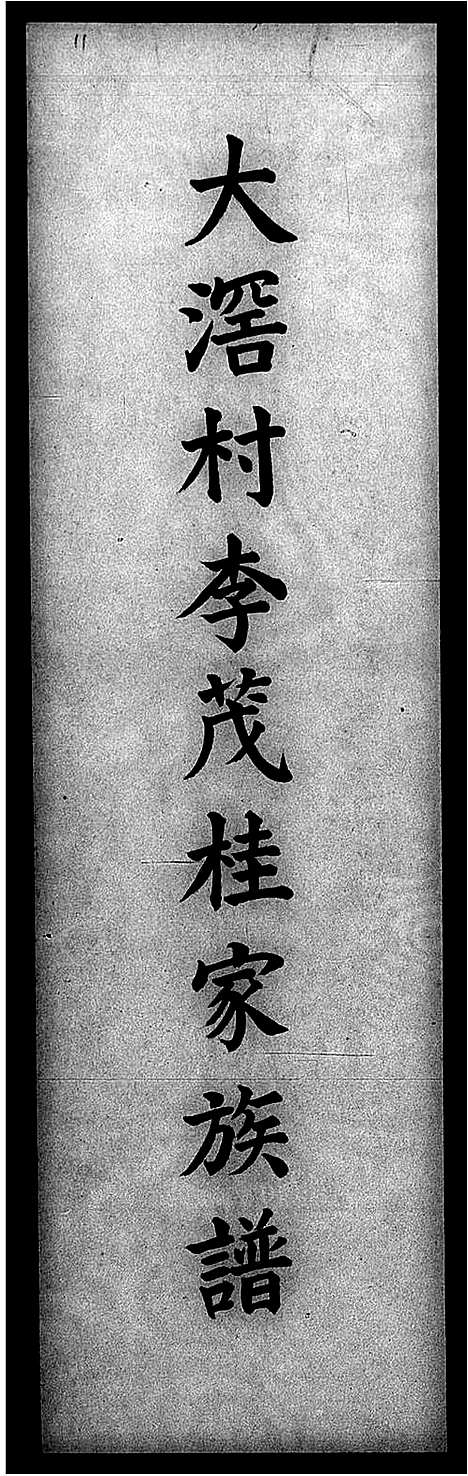 大滘村李茂桂家族譜